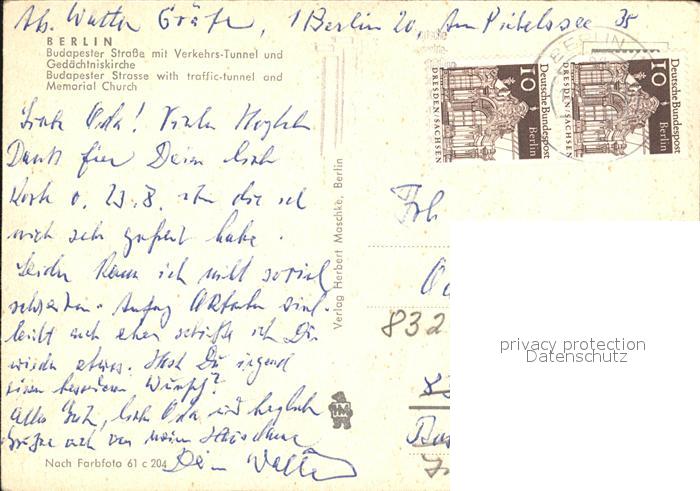 Ab. Walter Gräfe, 1 Berlin 20, Am Pichelssee 35
BERLIN
Budapester Straße mit Verkehrs-Tunnel und
Gedächtniskirche
Budapester Strasse with traffic-tunnel and
Memorial Church
10
Deutsche Bundespost
Berlin
DRESDEN/SACHSEN
10
Deutsche Bundespost
Berlin
DRESDEN/SACHSEN
BERLIN
Liebe Oda! Vielen herzlichen
Dank für Deine liebe
Karte v. 23.8. über die ich
mich sehr gefreut habe.
Leider kann ich nicht soviel
schreiben. Anfang Oktober viel-
leicht auch eher schicke ich Dir
wieder etwas. Hast Du irgend
einen besonderen Wunsch?
Alles Gute, liebe Oda und herzliche
Grüße auch von meinen
Dein Walter
Verlag Herbert Maschke, Berlin
HM
Nach Farbfoto 61 c 204
Frl.
832
privacy protection
Datenschutz